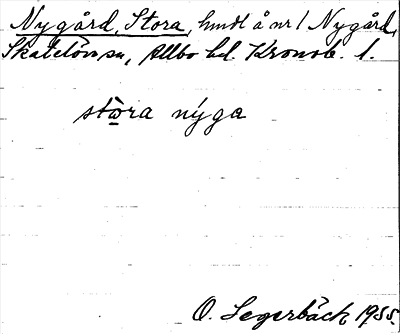 Nygård, Stora, hmdl å nr 1 Nygård,
Skatelövs sn, Allbo hd. Kronob. l.
stò̱ra nýga
O. Segerbäck 1955.